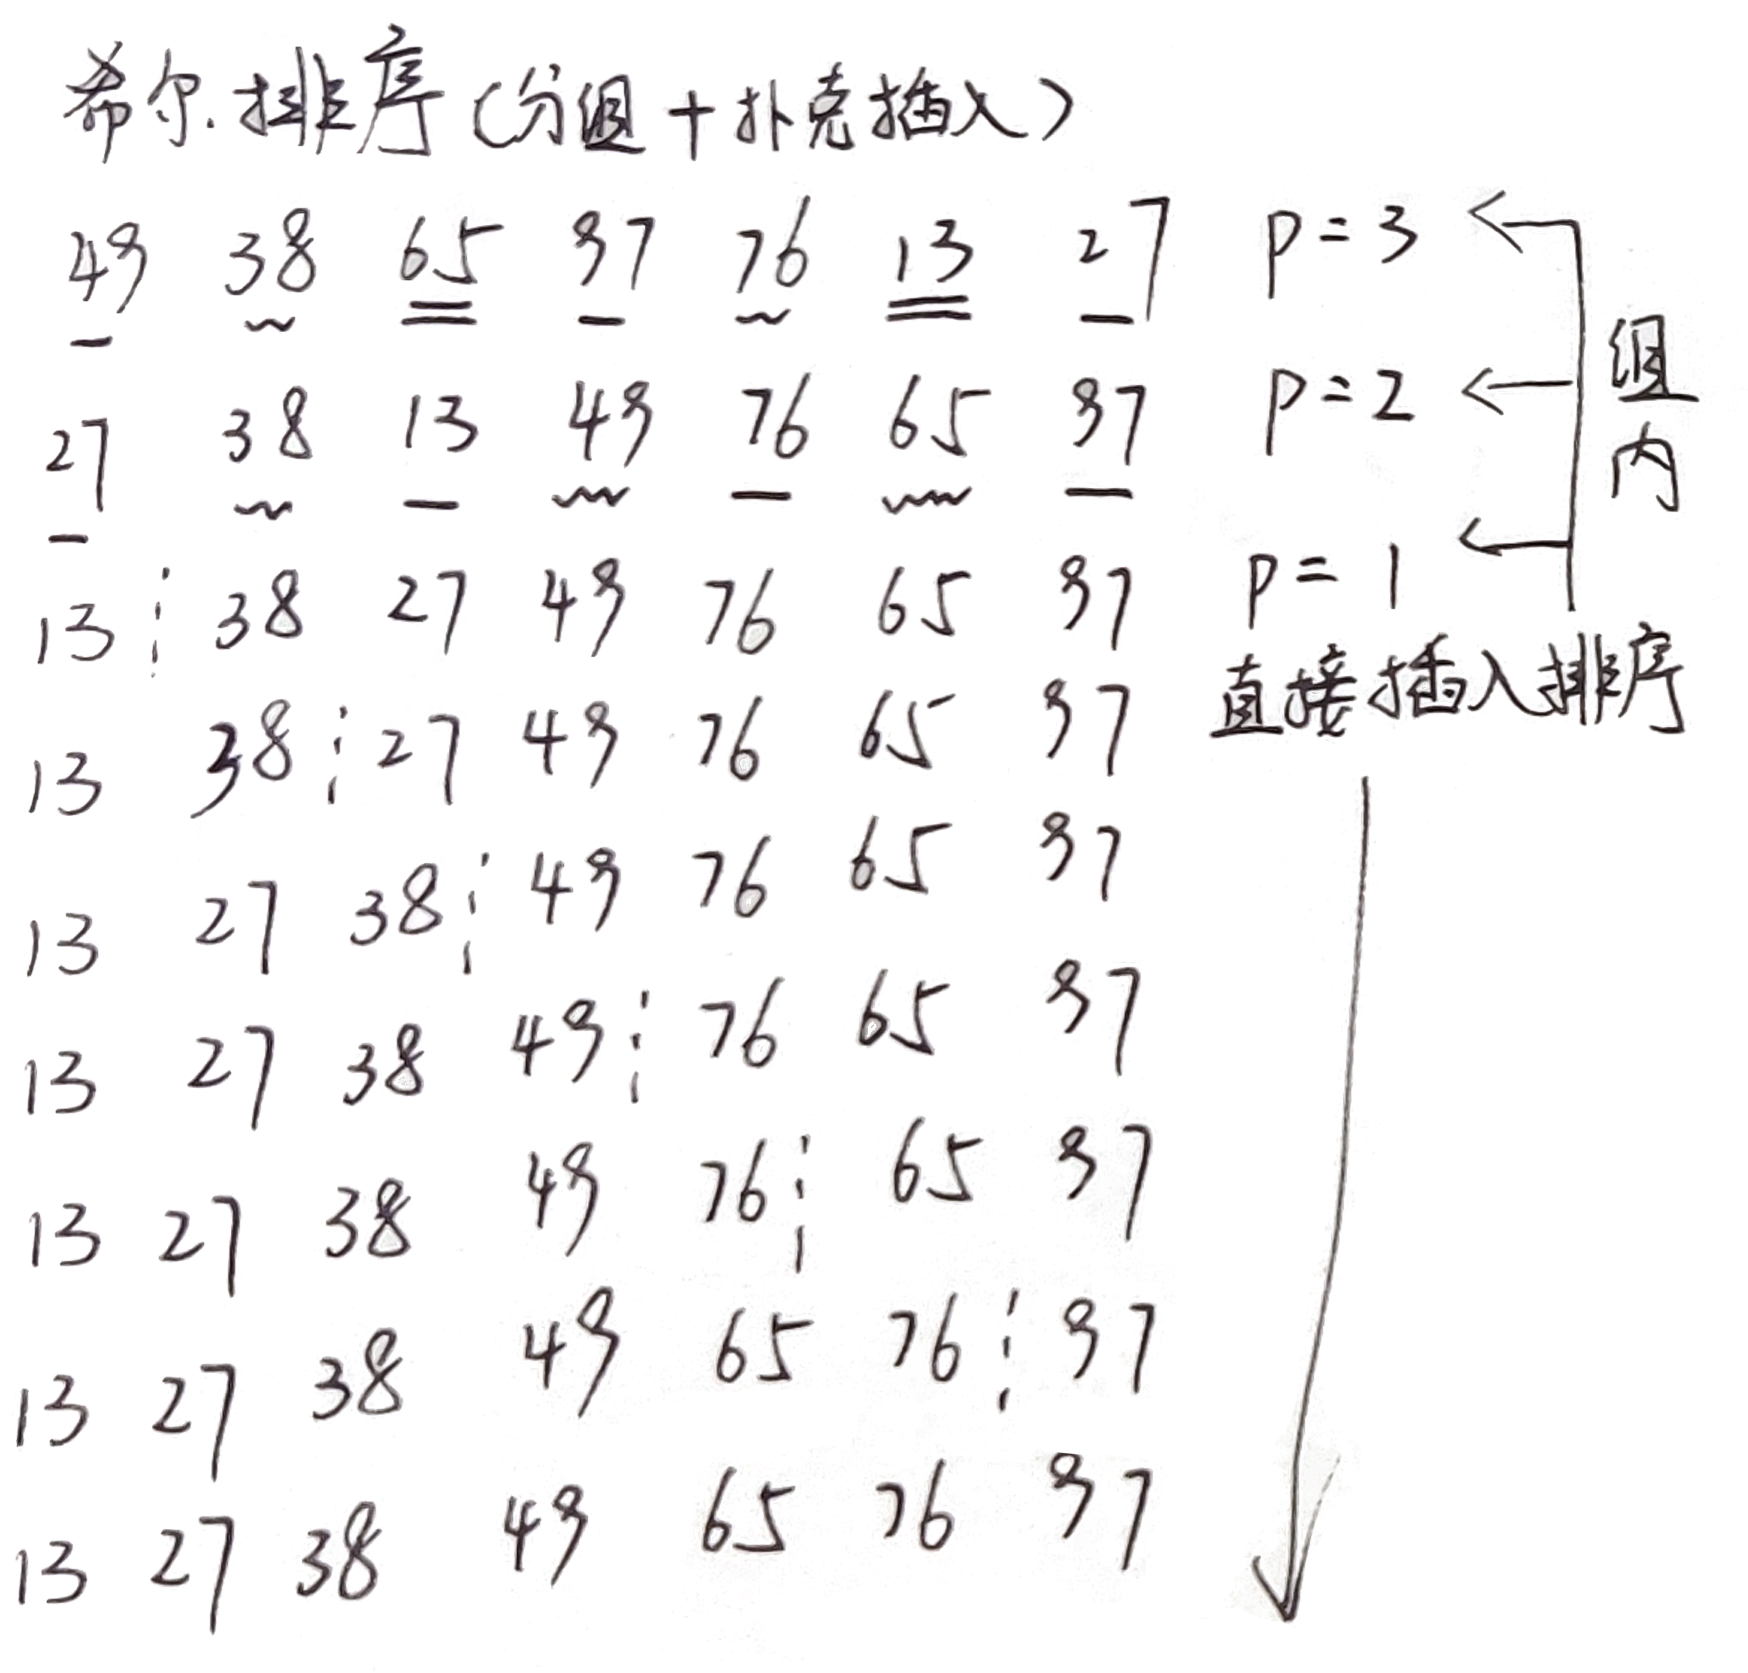 希尔排序(分组+扑克插入)
49 38 65 97 76 13 27 P=3
27 38 13 49 76 65 97 P=2
组内
13 38 27 49 76 65 97 P=1
直接插入排序
13 38 27 49 76 65 97
13 27 38 49 76 65 97
13 27 38 49 76 65 97
13 27 38 49 76 65 97
13 27 38 49 65 76 97
13 27 38 49 65 76 97